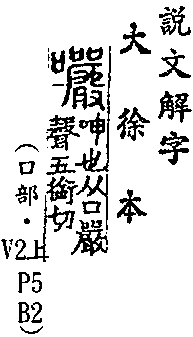 說文解字
大徐本
𡅖 呻也从口嚴
聲五銜切
(口部·
V2上
P5
B2)